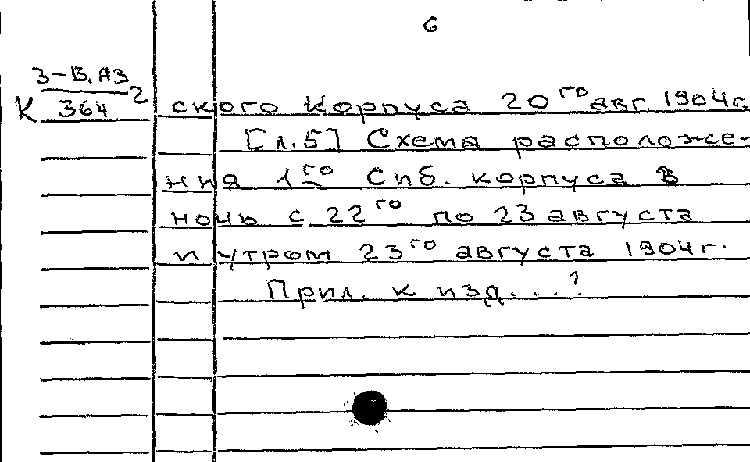 6
3-В.АЗ
К 364 2
ского Корпуса 20го авг 1904г
[л.5] Схема расположе-
ния 1го Спб. корпуса в
ночь с 22го по 23 августа
и утром 23го августа 1904г.
Прил. к изд...?